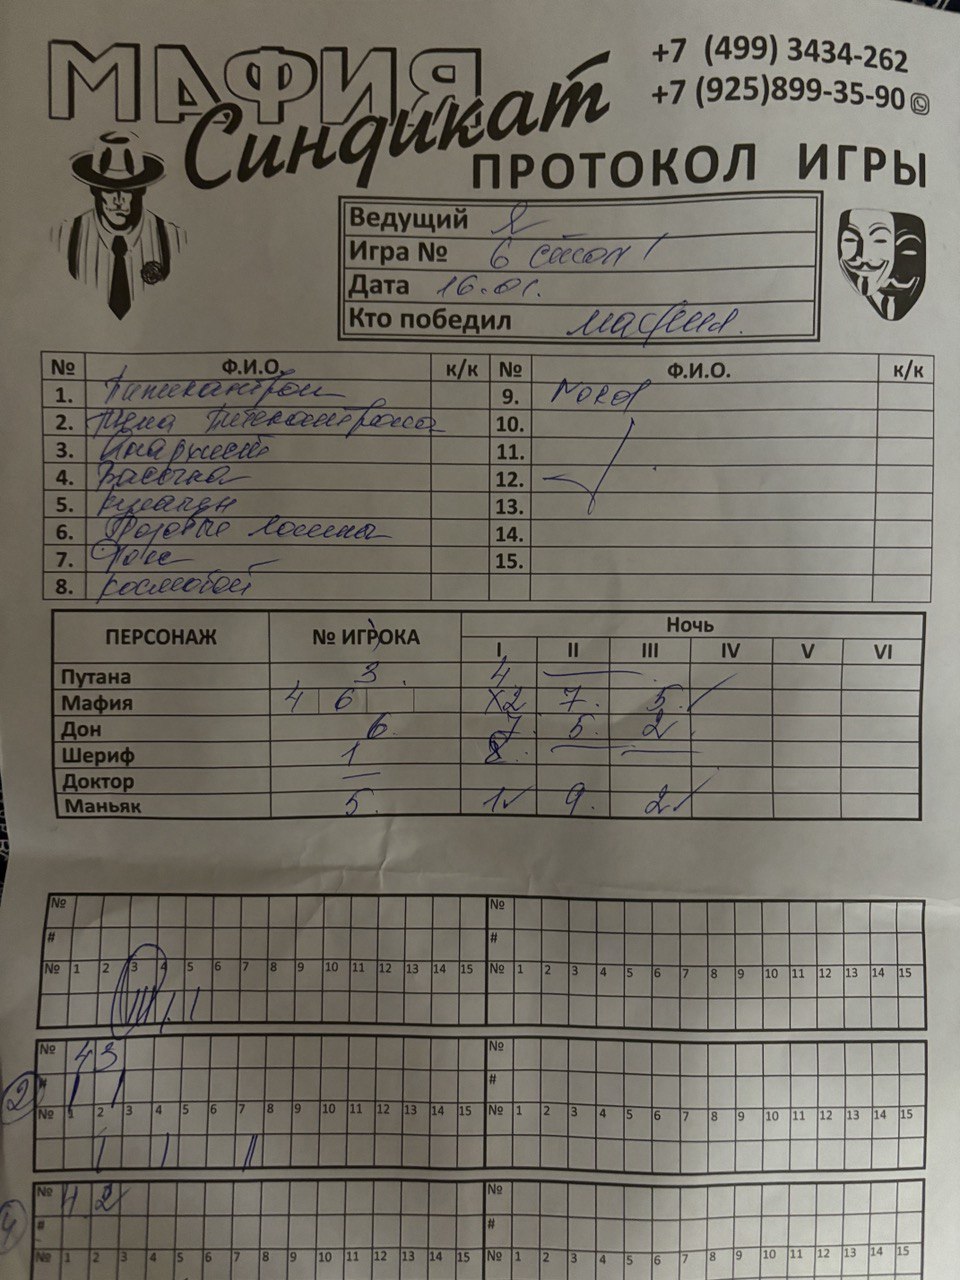 МАФИЯ
Синдикат
+7 (499) 3434-262
+7 (925)899-35-90
ПРОТОКОЛ ИГРЫ
Ведущий Я
Игра № 6 стол 1
Дата 16.01.
Кто победил мафия.
№ Ф.И.О. к/к № Ф.И.О. к/к
1. Питекантроп 9. Nord
2. Питекантропа 10.
3. Анархист 11.
4. Васечка 12.
5. 13.
6. Розовые лосины 14.
7. Фокс 15.
8. Космобой
ПЕРСОНАЖ № ИГРОКА Ночь
I II III IV V VI
Путана 3 4
Мафия 4 6 X2 7. 5.
Дон 6. 7 5. 2
Шериф 1 8
Доктор —
Маньяк 5. 1 9. 2
№ №
# #
№ 1 2 3 4 5 6 7 8 9 10 11 12 13 14 15 № 1 2 3 4 5 6 7 8 9 10 11 12 13 14 15
№ 4 3 №
2 # #
№ 1 2 3 4 5 6 7 8 9 10 11 12 13 14 15 № 1 2 3 4 5 6 7 8 9 10 11 12 13 14 15
№ 4 2 №
4 # #
№ 1 2 3 4 5 6 7 8 9 10 11 12 13 14 15 № 1 2 3 4 5 6 7 8 9 10 11 12 13 14 15